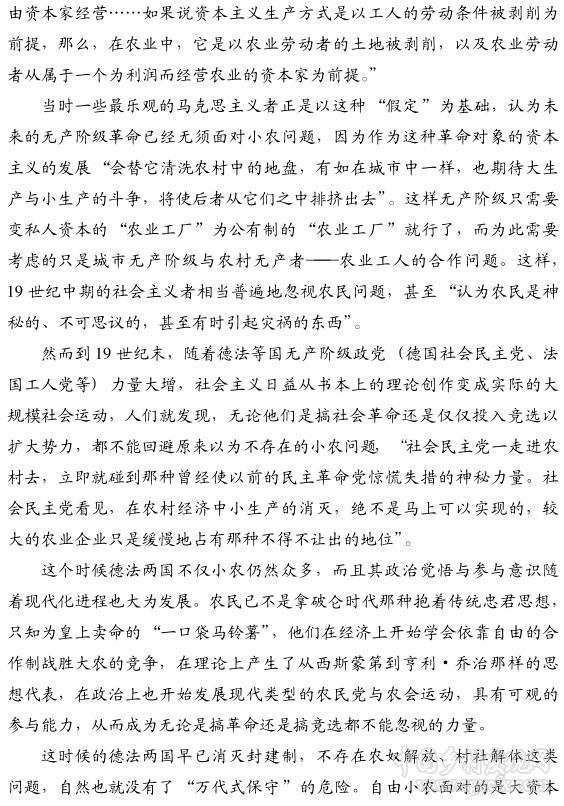 由资本家经营……如果说资本主义生产方式是以工人的劳动条件被剥削为
前提，那么，在农业中，它是以农业劳动者的土地被剥削，以及农业劳动
者从属于一个为利润而经营农业的资本家为前提。”
当时一些最乐观的马克思主义者正是以这种“假定”为基础，认为未
来的无产阶级革命已经无须面对小农问题，因为作为这种革命对象的资本
主义的发展“会替它清洗农村中的地盘，有如在城市中一样，也期待大生
产与小生产的斗争，将使后者从它们之中排挤出去”。这样无产阶级只需要
变私人资本的“农业工厂”为公有制的“农业工厂”就行了，而为此需要
考虑的只是城市无产阶级与农村无产者——农业工人的合作问题。这样，
19 世纪中期的社会主义者相当普遍地忽视农民问题，甚至“认为农民是神
秘的、不可思议的，甚至有时引起灾祸的东西”。
然而到 19 世纪末，随着德法等国无产阶级政党（德国社会民主党、法
国工人党等）力量大增，社会主义日益从书本上的理论创作变成实际的大
规模社会运动，人们就发现，无论他们是搞社会革命还是仅仅投入竞选以
扩大势力，都不能回避原来以为不存在的小农问题，“社会民主党一走进农
村去，立即就碰到那种曾经使以前的民主革命党惊慌失措的神秘力量。社
会民主党看见，在农村经济中小生产的消灭，绝不是马上可以实现的，较
大的农业企业只是缓慢地占有那种不得不让出的地位”。
这个时候德法两国不仅小农仍然众多，而且其政治觉悟与参与意识随
着现代化进程也大为发展。农民已不是拿破仑时代那种抱着传统忠君思想，
只知为皇上卖命的“一口袋马铃薯”，他们在经济上开始学会依靠自由的合
作制战胜大农的竞争，在理论上产生了从西斯蒙第到亨利·乔治那样的思
想代表，在政治上也开始发展现代类型的农民党与农会运动，具有可观的
参与能力，从而成为无论是搞革命还是搞竞选都不能忽视的力量。
这时候的德法两国早已消灭封建制，不存在农奴解放、村社解体这类
问题，自然也就没有了“万代式保守”的危险。自由小农面对的是大资本